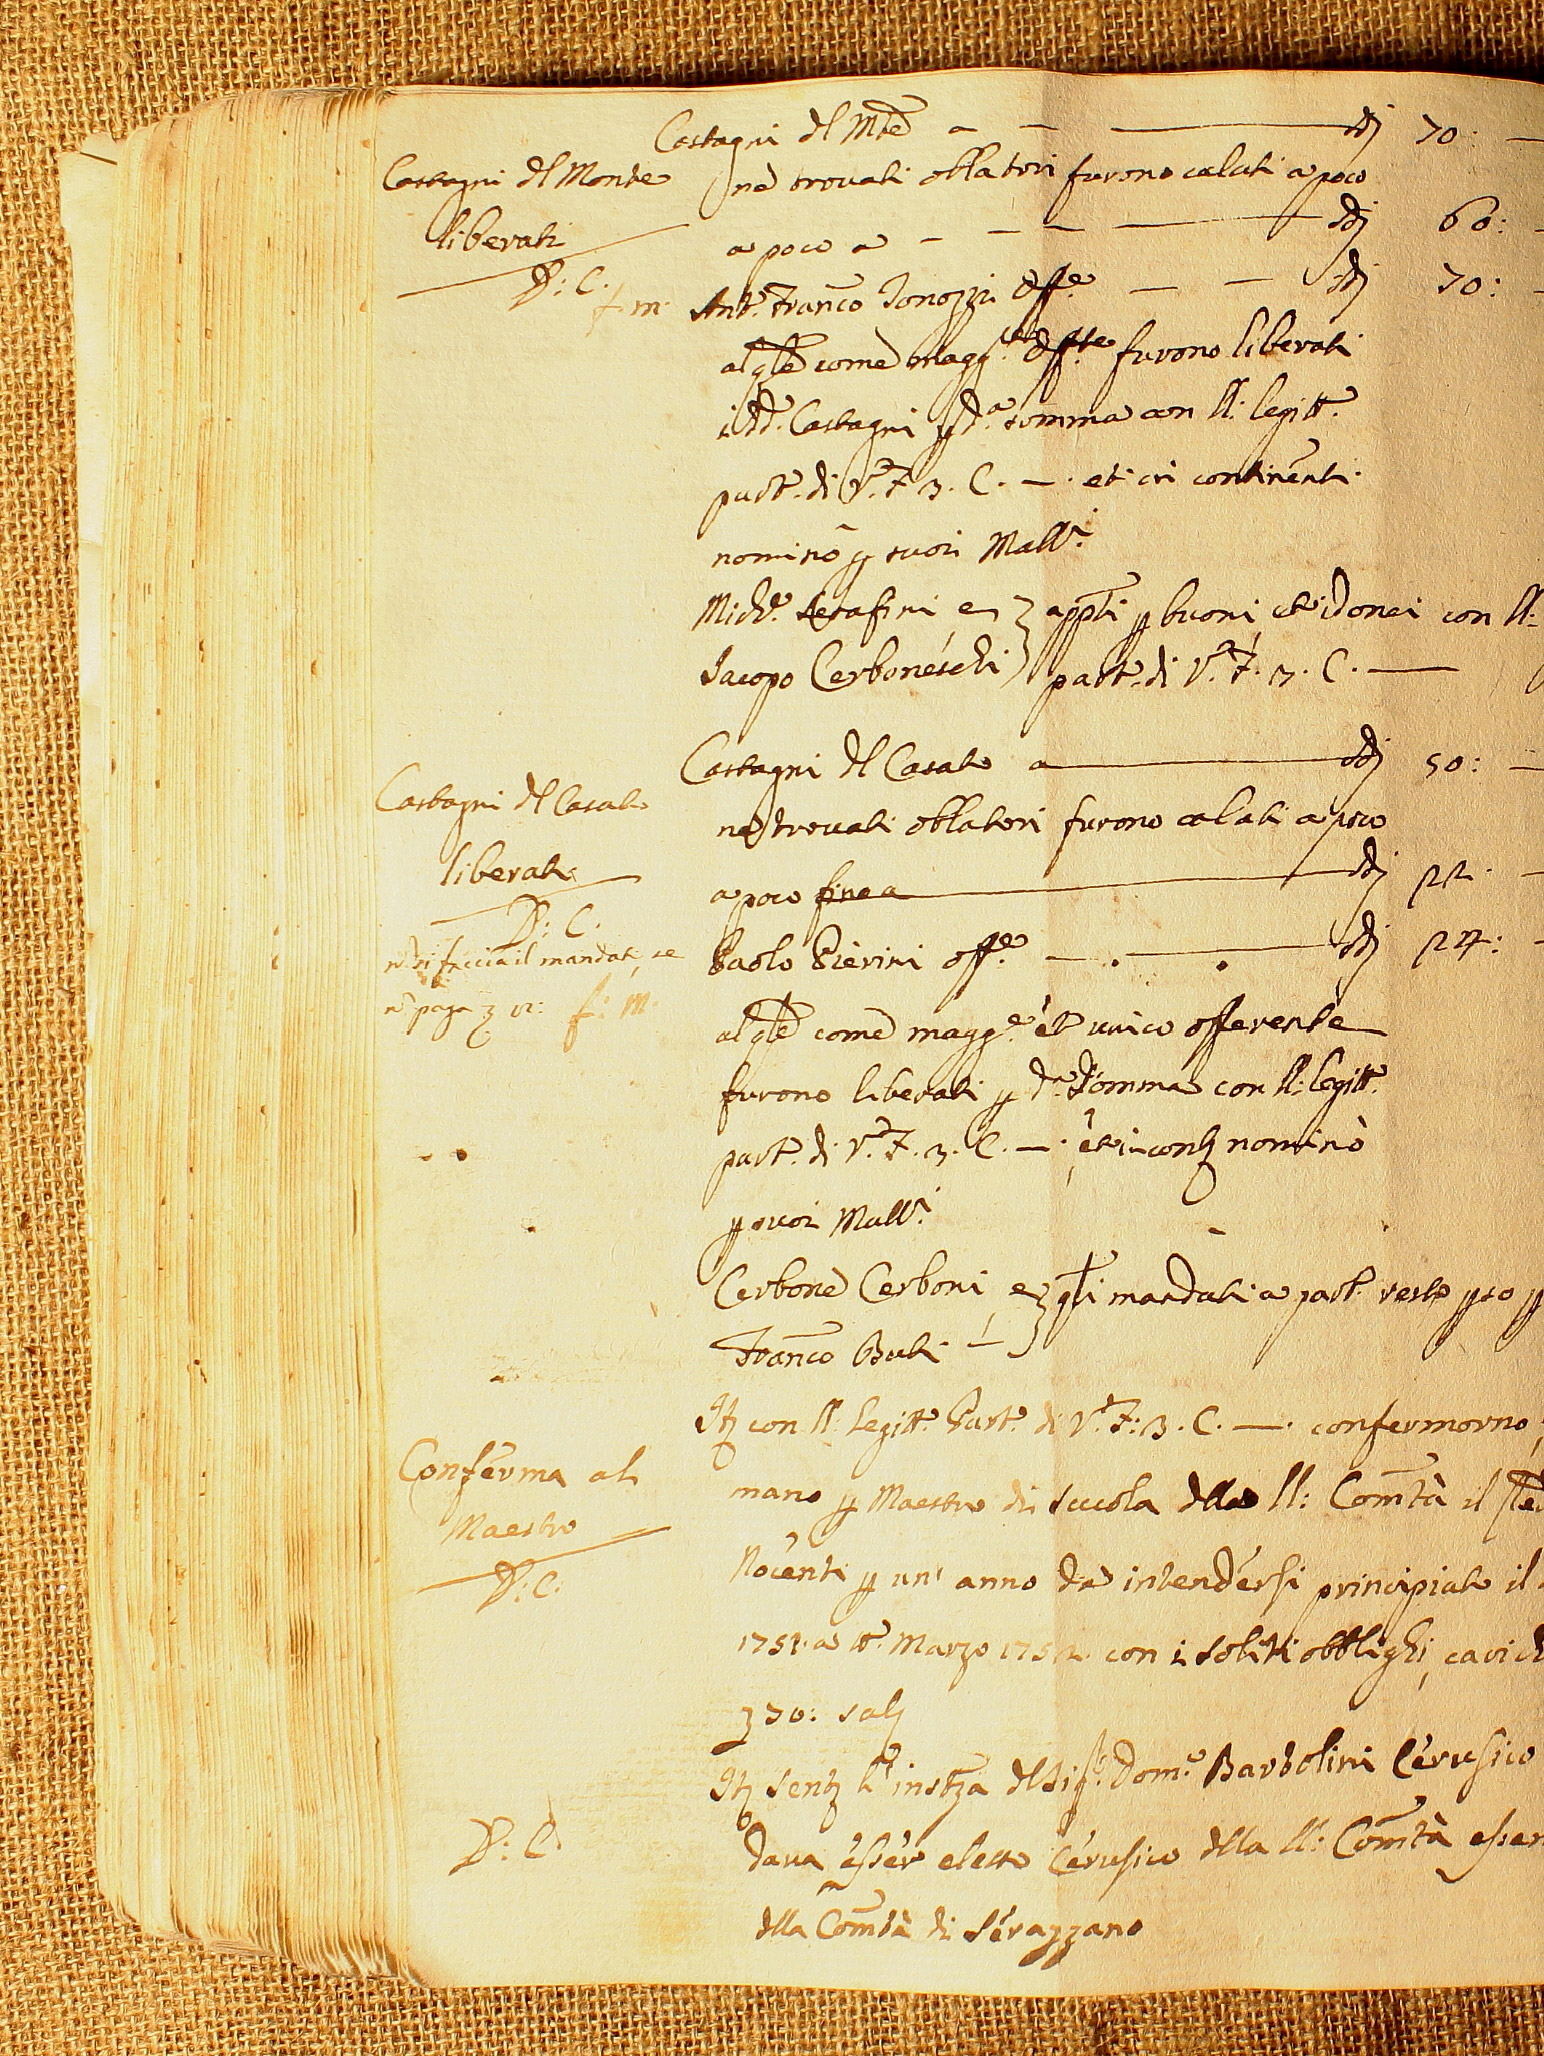 Castagni dl Mte a — sdi 70: —
Castagni dl Monte
liberati
D: C.
f. m.
nè trovati oblatori furono calati a poco
a poco a — sdi 60: —
Ant.o Franco Tonozzi Off.e — sdi 70: —
al qle come magg.re Off.te furono liberati
i dd. Castagni p d.a somma con ll: legitt.e
part. di V. F. 3. C. —. et in continenti
nominò p suoi Mallri
Mich.e Serafini, e appti p buoni, et idonei con ll:
Jacopo Cerboneschi part. di V. F. 3. C. —
Castagni dl Casale a — sdi 50: —
Castagni dl Casale
liberati
D: C.
n si faccia il mandat, se
n paga
f: m.
nè trovati oblatori furono calati a poco
a poco fino a — sdi 22. —
Paolo Pierini off.e — sdi 24: —
al qle come magg.e et unico offerente
furono liberati p d.a somma con ll: legitt.
part. di V. F. 3. C. —. et in cont nominò
p suoi Mallri
Cerbone Cerboni e qli mandati a part. resto pso p
Franco Buti
Conferma al
Maestro
D: C.
It con ll. legitt. Part. di V. F: 3. C. —. confermorno,
mano p Maestro di Scuola dlla ll: Comtà il
Nocenti p un' anno da intendersi principiato il
1751. a tt.o Marzo 1752. con i soliti obblighi, carichi
30: sal
D: C.
It sent l' instza dl Sig. Dom.o Bartolini Cerusico
dava esser eletto Cerusico dlla ll: Comtà essen
dlla Comtà di Serazzano